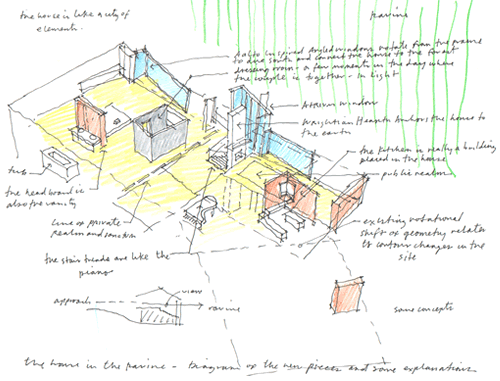 the house is like a city of
elements.
ravine
Aalto inspired Angled windows rotate from the ravine
to due south and connect the house to the forest
dressing room - a few moments in the day where
the couple is together - in light
window
Wrightian Hearth Anchors the house to
the earth
the kitchen is really a building
placed in the house
public realm
tub
the head board is
also the vanity
line of private
realm and
the stair treads are like the
piano
existing rotational
shift of geometry relates
to contour changes in the
site
view
approach
ravine
same concepts
the house in the ravine - Diagram of the new pieces and some explanations